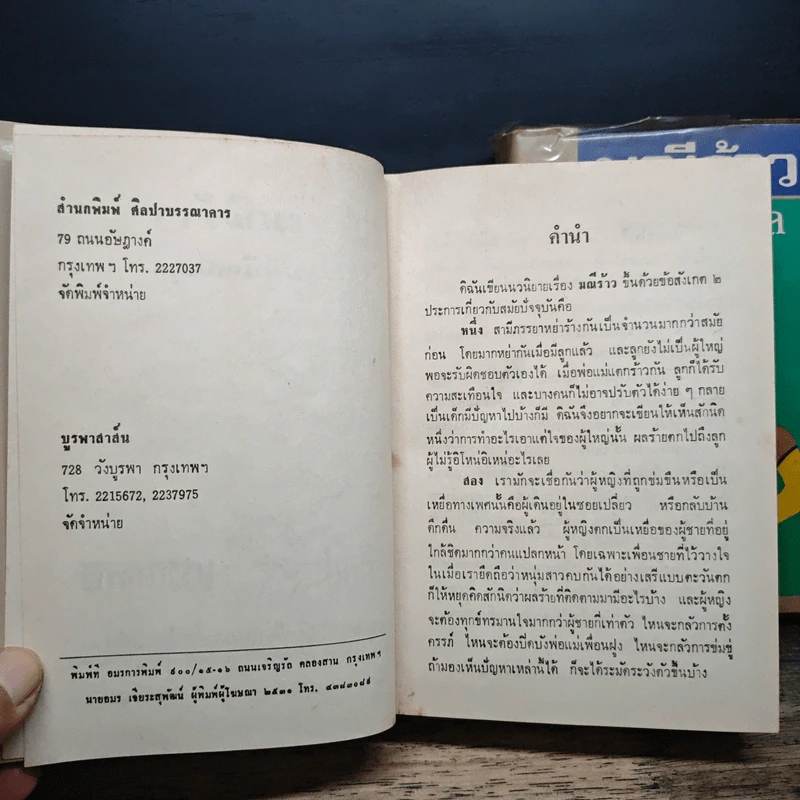 สำนักพิมพ์ ศิลปาบรรณาคาร
79 ถนนอัษฎางค์
กรุงเทพฯ โทร. 2227037
จัดพิมพ์จำหน่าย
บูรพาสาส์น
728 วังบูรพา กรุงเทพฯ
โทร. 2215672, 2237975
จัดจำหน่าย
พิมพ์ที่ อมรการพิมพ์ ๙๐๐/๑๕-๑๖ ถนนเจริญรัถ คลองสาน กรุงเทพฯ
นายอมร เจียระสุพัฒน์ ผู้พิมพ์ผู้โฆษณา ๒๕๓๑ โทร. ๔๓๘๓๐๘๙
คำนำ
ดิฉันเขียนนวนิยายเรื่อง มณีร้าว ขึ้นด้วยข้อสังเกต ๒
ประการเกี่ยวกับสมัยปัจจุบันคือ
หนึ่ง สามีภรรยาหย่าร้างกันเป็นจำนวนมากกว่าสมัย
ก่อน โดยมากหย่ากันเมื่อมีลูกแล้ว และลูกยังไม่เป็นผู้ใหญ่
พอจะรับผิดชอบตัวเองได้ เมื่อพ่อแม่แตกร้าวกัน ลูกก็ได้รับ
ความสะเทือนใจ และบางคนก็ไม่อาจปรับตัวได้ง่าย ๆ กลาย
เป็นเด็กมีปัญหาไปบ้างก็มี ดิฉันจึงอยากจะเขียนให้เห็นสักนิด
หนึ่งว่าการทำอะไรเอาแต่ใจของผู้ใหญ่นั้น ผลร้ายตกไปถึงลูก
ผู้ไม่รู้อิโหน่อิเหน่อะไรเลย
สอง เรามักจะเชื่อกันว่าผู้หญิงที่ถูกข่มขืนหรือเป็น
เหยื่อทางเพศนั้นคือผู้เดินอยู่ในซอยเปลี่ยว หรือกลับบ้าน
ดึกดื่น ความจริงแล้ว ผู้หญิงตกเป็นเหยื่อของผู้ชายที่อยู่
ใกล้ชิดมากกว่าคนแปลกหน้า โดยเฉพาะเพื่อนชายที่ไว้วางใจ
ในเมื่อเรายึดถือว่าหนุ่มสาวคบกันได้อย่างเสรีแบบตะวันตก
ก็ให้หยุดคิดสักนิดว่าผลร้ายที่ติดตามมามีอะไรบ้าง และผู้หญิง
จะต้องทุกข์ทรมานใจมากกว่าผู้ชายกี่เท่าตัว ไหนจะกลัวการตั้ง
ครรภ์ ไหนจะต้องปิดบังพ่อแม่เพื่อนฝูง ไหนจะกลัวการข่มขู่
ถ้ามองเห็นปัญหาเหล่านี้ได้ ก็จะได้ระมัดระวังตัวขึ้นบ้าง